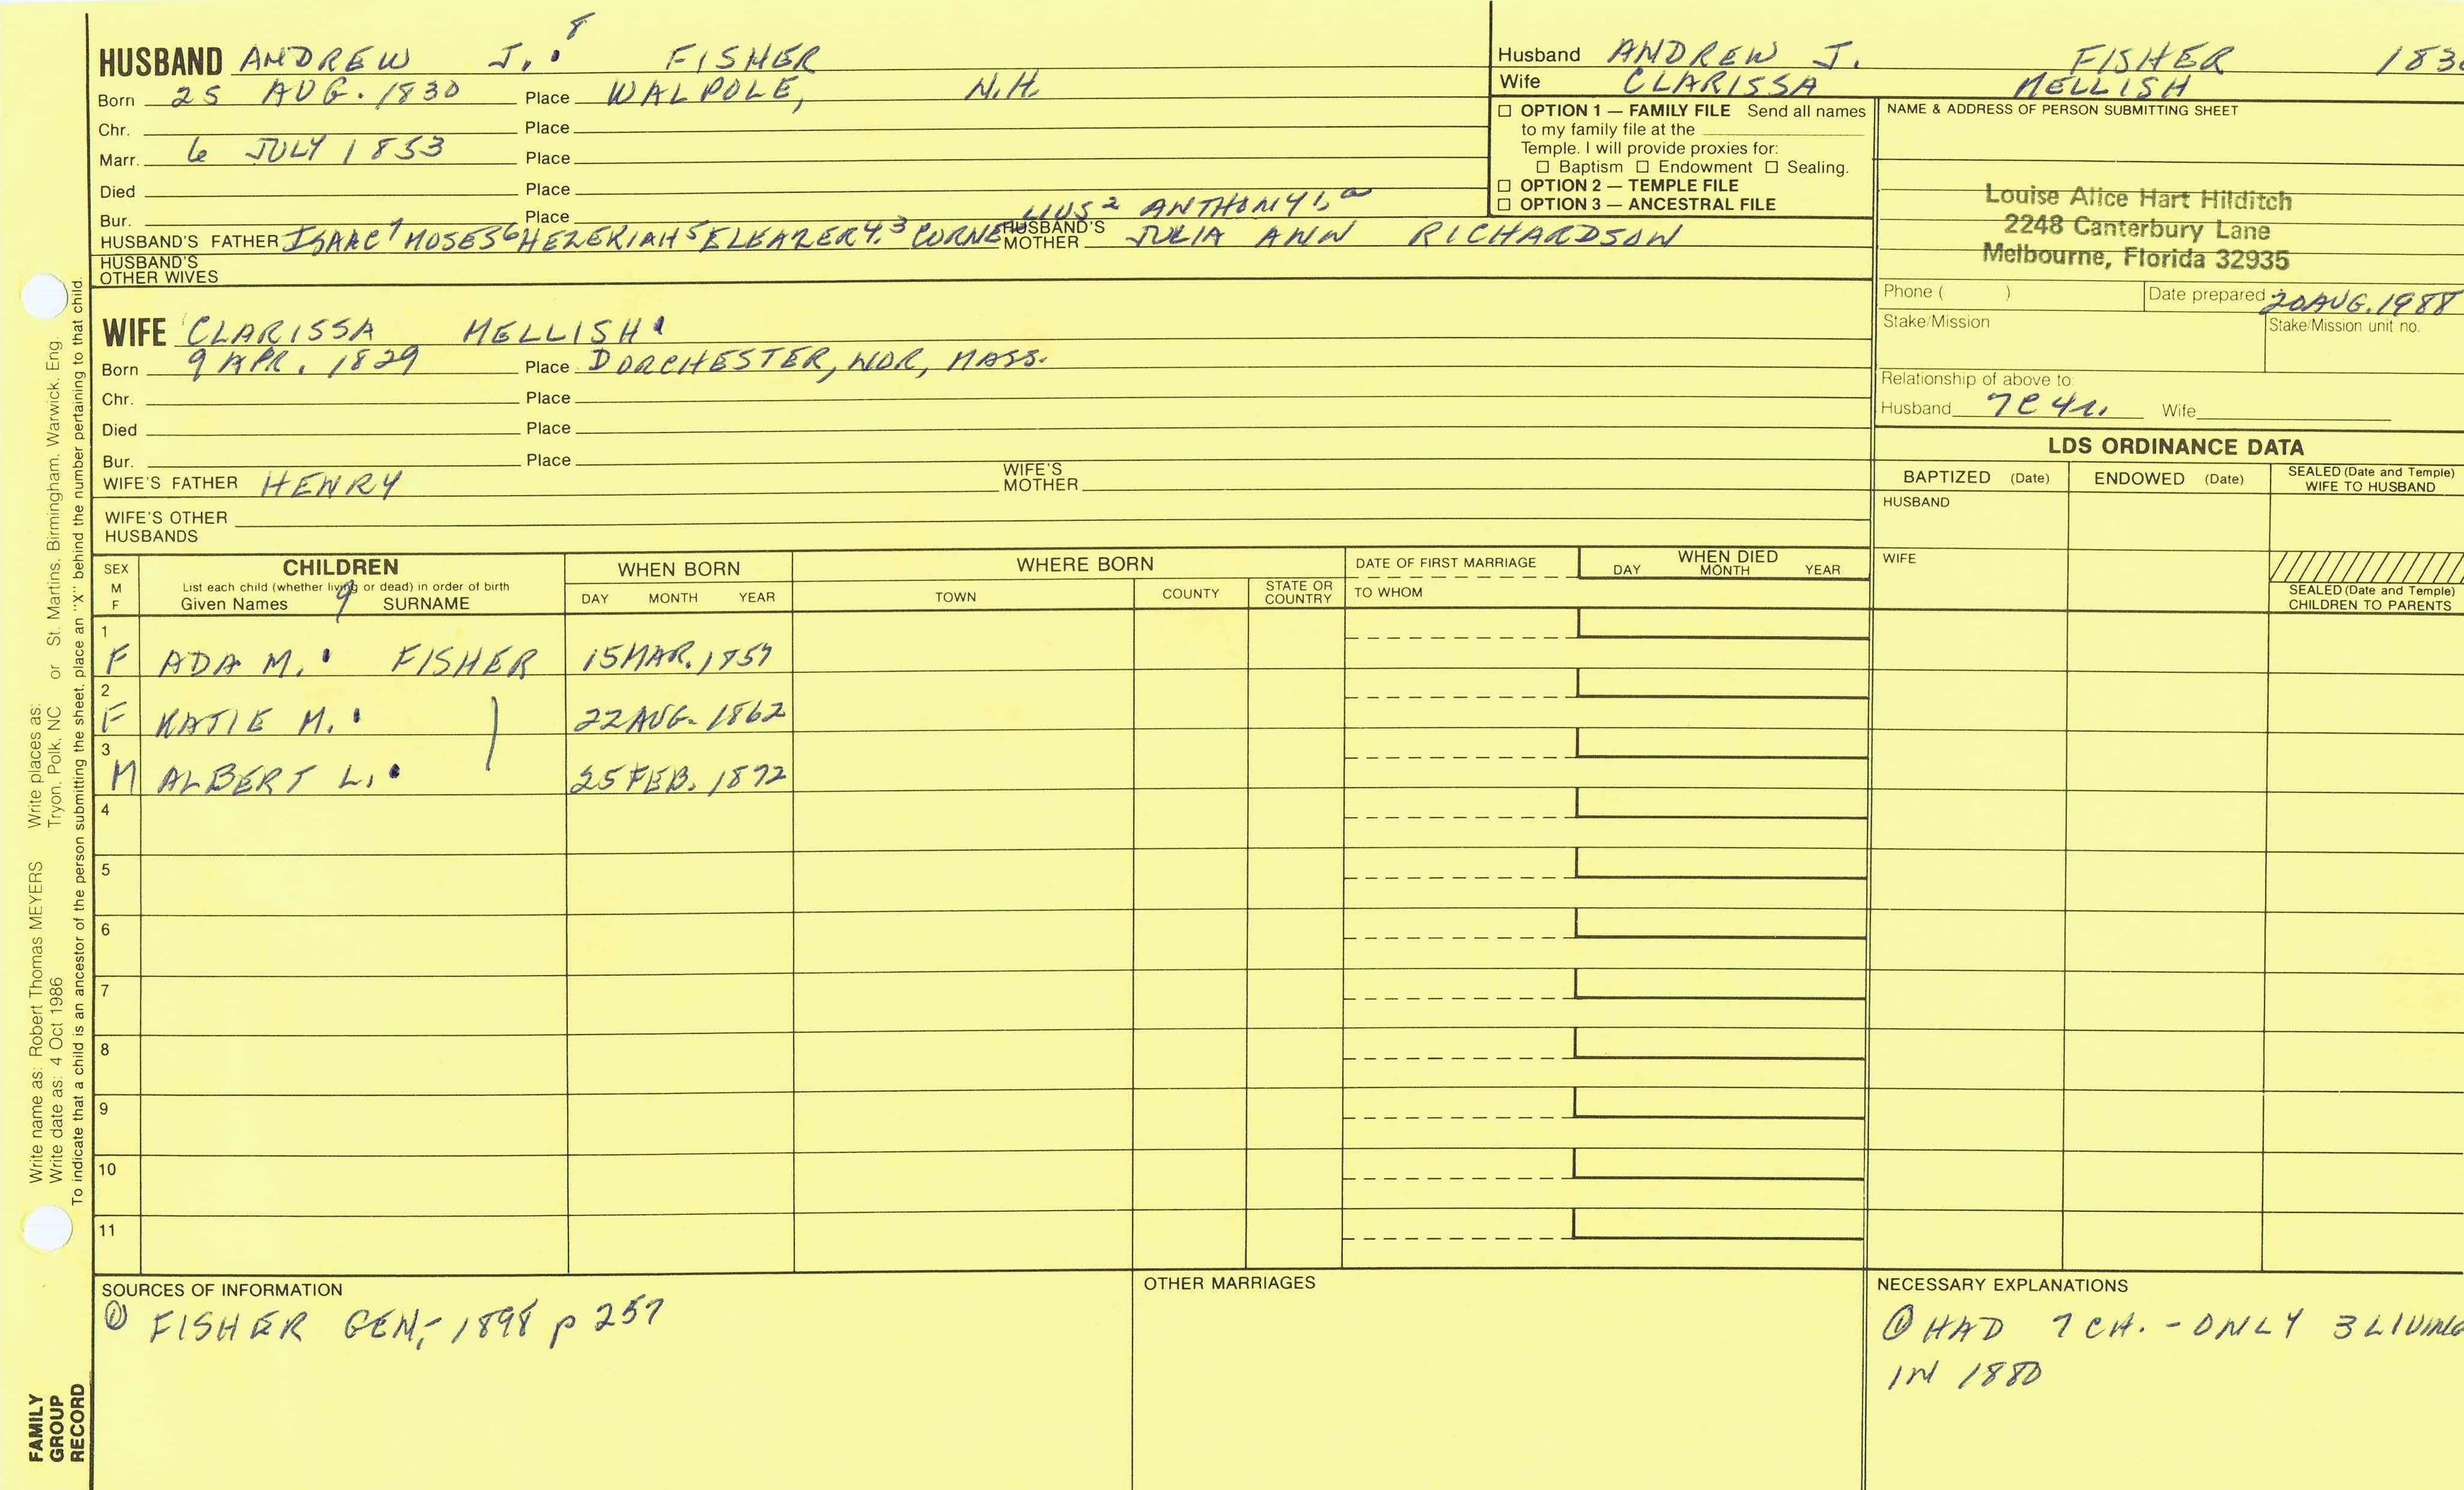 8
HUSBAND ANDREW J. FISHER
Born 25 AUG. 1830 Place WALPOLE, N.H.
Chr. Place
Marr. 6 JULY 1853 Place
Died Place
Bur. Place LIUS 2 ANTHONY 1,
HUSBAND'S FATHER ISAAC 7 MOSES 6 HEZEKIAH 5 ELEAZER 4, 3 CORNE HUSBAND'S MOTHER JULIA ANN RICHARDSON
HUSBAND'S
OTHER WIVES
WIFE CLARISSA MELLISH
Born 9 APR. 1829 Place DORCHESTER, WOR, MASS.
Chr. Place
Died Place
Bur. Place
WIFE'S FATHER HENRY WIFE'S MOTHER
WIFE'S OTHER
HUSBANDS
Husband ANDREW J. FISHER 183
Wife CLARISSA MELLISH
☐ OPTION 1 — FAMILY FILE Send all names
to my family file at the
Temple. I will provide proxies for:
☐ Baptism ☐ Endowment ☐ Sealing.
☐ OPTION 2 — TEMPLE FILE
☐ OPTION 3 — ANCESTRAL FILE
NAME & ADDRESS OF PERSON SUBMITTING SHEET
Louise Alice Hart Hilditch
2248 Canterbury Lane
Melbourne, Florida 32935
Phone ( ) Date prepared 20 AUG. 1988
Stake/Mission Stake/Mission unit no.
Relationship of above to:
Husband 7C4R. Wife
LDS ORDINANCE DATA
BAPTIZED (Date) ENDOWED (Date) SEALED (Date and Temple)
WIFE TO HUSBAND
HUSBAND
WIFE
SEALED (Date and Temple)
CHILDREN TO PARENTS
SEX
M
F
CHILDREN
List each child (whether living or dead) in order of birth
Given Names 9 SURNAME
WHEN BORN
DAY MONTH YEAR
WHERE BORN
TOWN COUNTY STATE OR COUNTRY
DATE OF FIRST MARRIAGE
TO WHOM
WHEN DIED
DAY MONTH YEAR
1
F ADA M. FISHER 15 MAR. 1857
2
F KATIE M. 22 AUG. 1862
3
M ALBERT L. 25 FEB. 1872
4
5
6
7
8
9
10
11
SOURCES OF INFORMATION
① FISHER GEN, 1898 p 257
OTHER MARRIAGES
NECESSARY EXPLANATIONS
① HAD 7 CH. - ONLY 3 LIVING
IN 1880
Write name as: Robert Thomas MEYERS Write places as: St. Martins, Birmingham, Warwick, Eng.
Write date as: 4 Oct 1986 Tryon, Polk, NC or
To indicate that a child is an ancestor of the person submitting the sheet, place an "X" behind the number pertaining to that child.
FAMILY
GROUP
RECORD